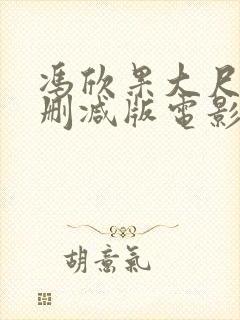 馮欣果大尺
刪減版電影
胡意氣